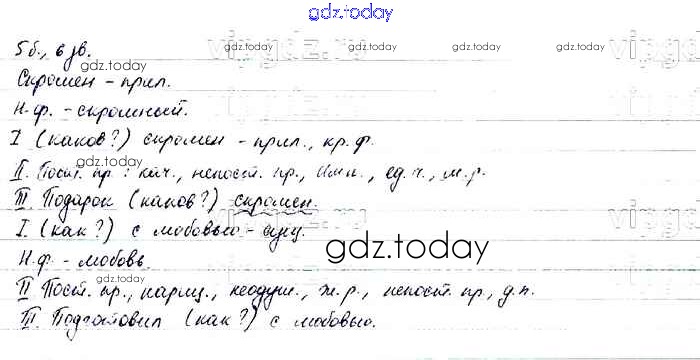 gdz.today
5б., 6 зв.
Скромен - прил.
Н.ф. - скромный.
I (каков?) скромен - прил., кр.ф.
II. Пост. пр.: кач., непост. пр., Им.п., ед.ч., м.р.
III. Подарок (каков?) скромен.
I (как?) с любовью - сущ.
Н.ф. - любовь.
II Пост. пр., нариц., неодуш., ж.р., непост. пр., д.п.
III Подготовил (как?) с любовью.
gdz.today
gdz.today
gdz.today
gdz.today
gdz.today
gdz.today
gdz.today
gdz.today